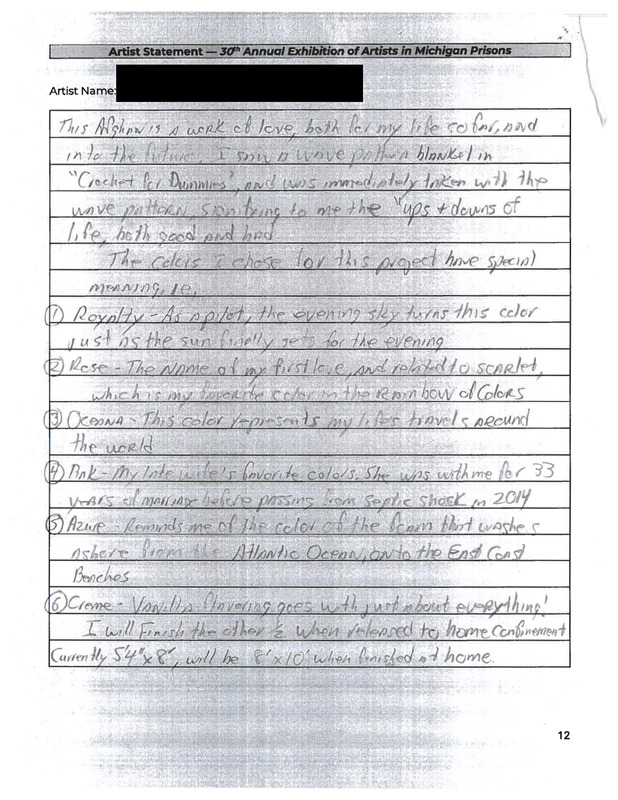 Artist Statement — 30th Annual Exhibition of Artists in Michigan Prisons
Artist Name:
This Afghan is a work of love, both for my life so far, and
into the future. I saw a wave pattern blanket in
"Crochet for Dummies", and was immediately taken with the
wave pattern, signifying to me the "ups + downs of
life, both good and bad
The colors I chose for this project have special
meaning, i.e,
① Royalty - As a pilot, the evening sky turns this color
just as the sun finally sets for the evening
② Rose - The Name of my first love, and related to scarlet,
which is my favorite color in the Rainbow of Colors
③ Oceana - This color represents my life's travels around
the world
④ Pink - My late wife's favorite colors. She was with me for 33
years of marriage before passing from septic shock in 2014
⑤ Azure - Reminds me of the color of the foam that washes
ashore from the Atlantic Ocean, onto the East Coast
Beaches
⑥ Creme - Vanilla flavoring goes with just about everything!
I will Finish the other ½ when released to home confinement
Currently 5'4" x 8', will be 8' x 10' when finished at home.
12